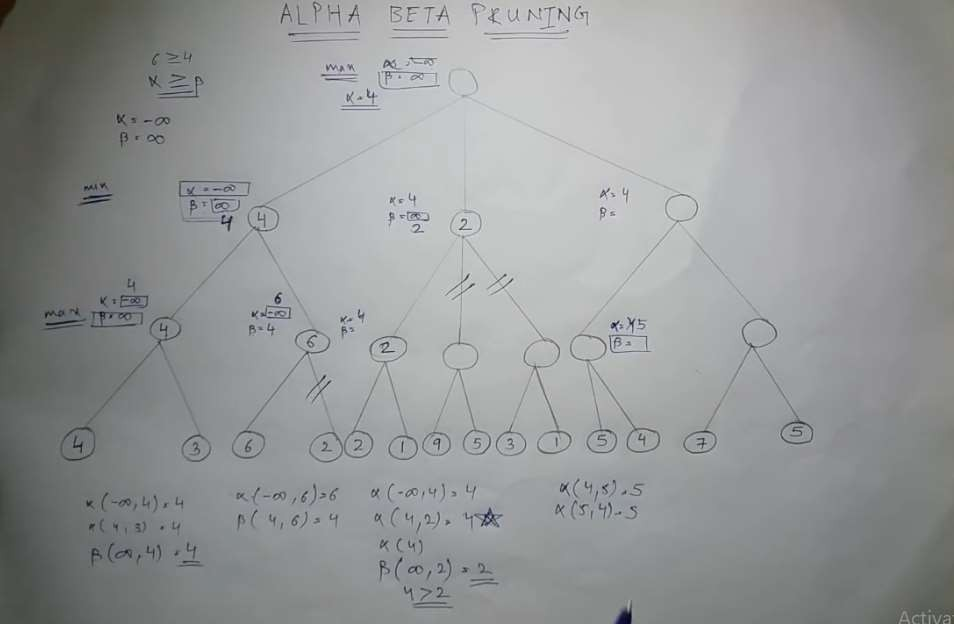 ALPHA BETA PRUNING
6 ≥ 4
α ≥ β
α = -∞
β = ∞
max
α = -∞
β = ∞
α = 4
min
α = -∞
β = ∞
4
4
α = 4
β = ∞
2
2
α = 4
β =
max
4
α = -∞
β = ∞
4
6
α = -∞
β = 4
6
α = 4
β =
2
α = 4 5
β =
4
3
6
2
2
1
9
5
3
1
5
4
7
5
α (-∞, 4) = 4
α (4, 3) = 4
β (∞, 4) = 4
α (-∞, 6) = 6
β (4, 6) = 4
α (-∞, 4) = 4
α (4, 2) = 4
α (4)
β (∞, 2) = 2
4 > 2
α (4, 5) = 5
α (5, 4) = 5
Activa